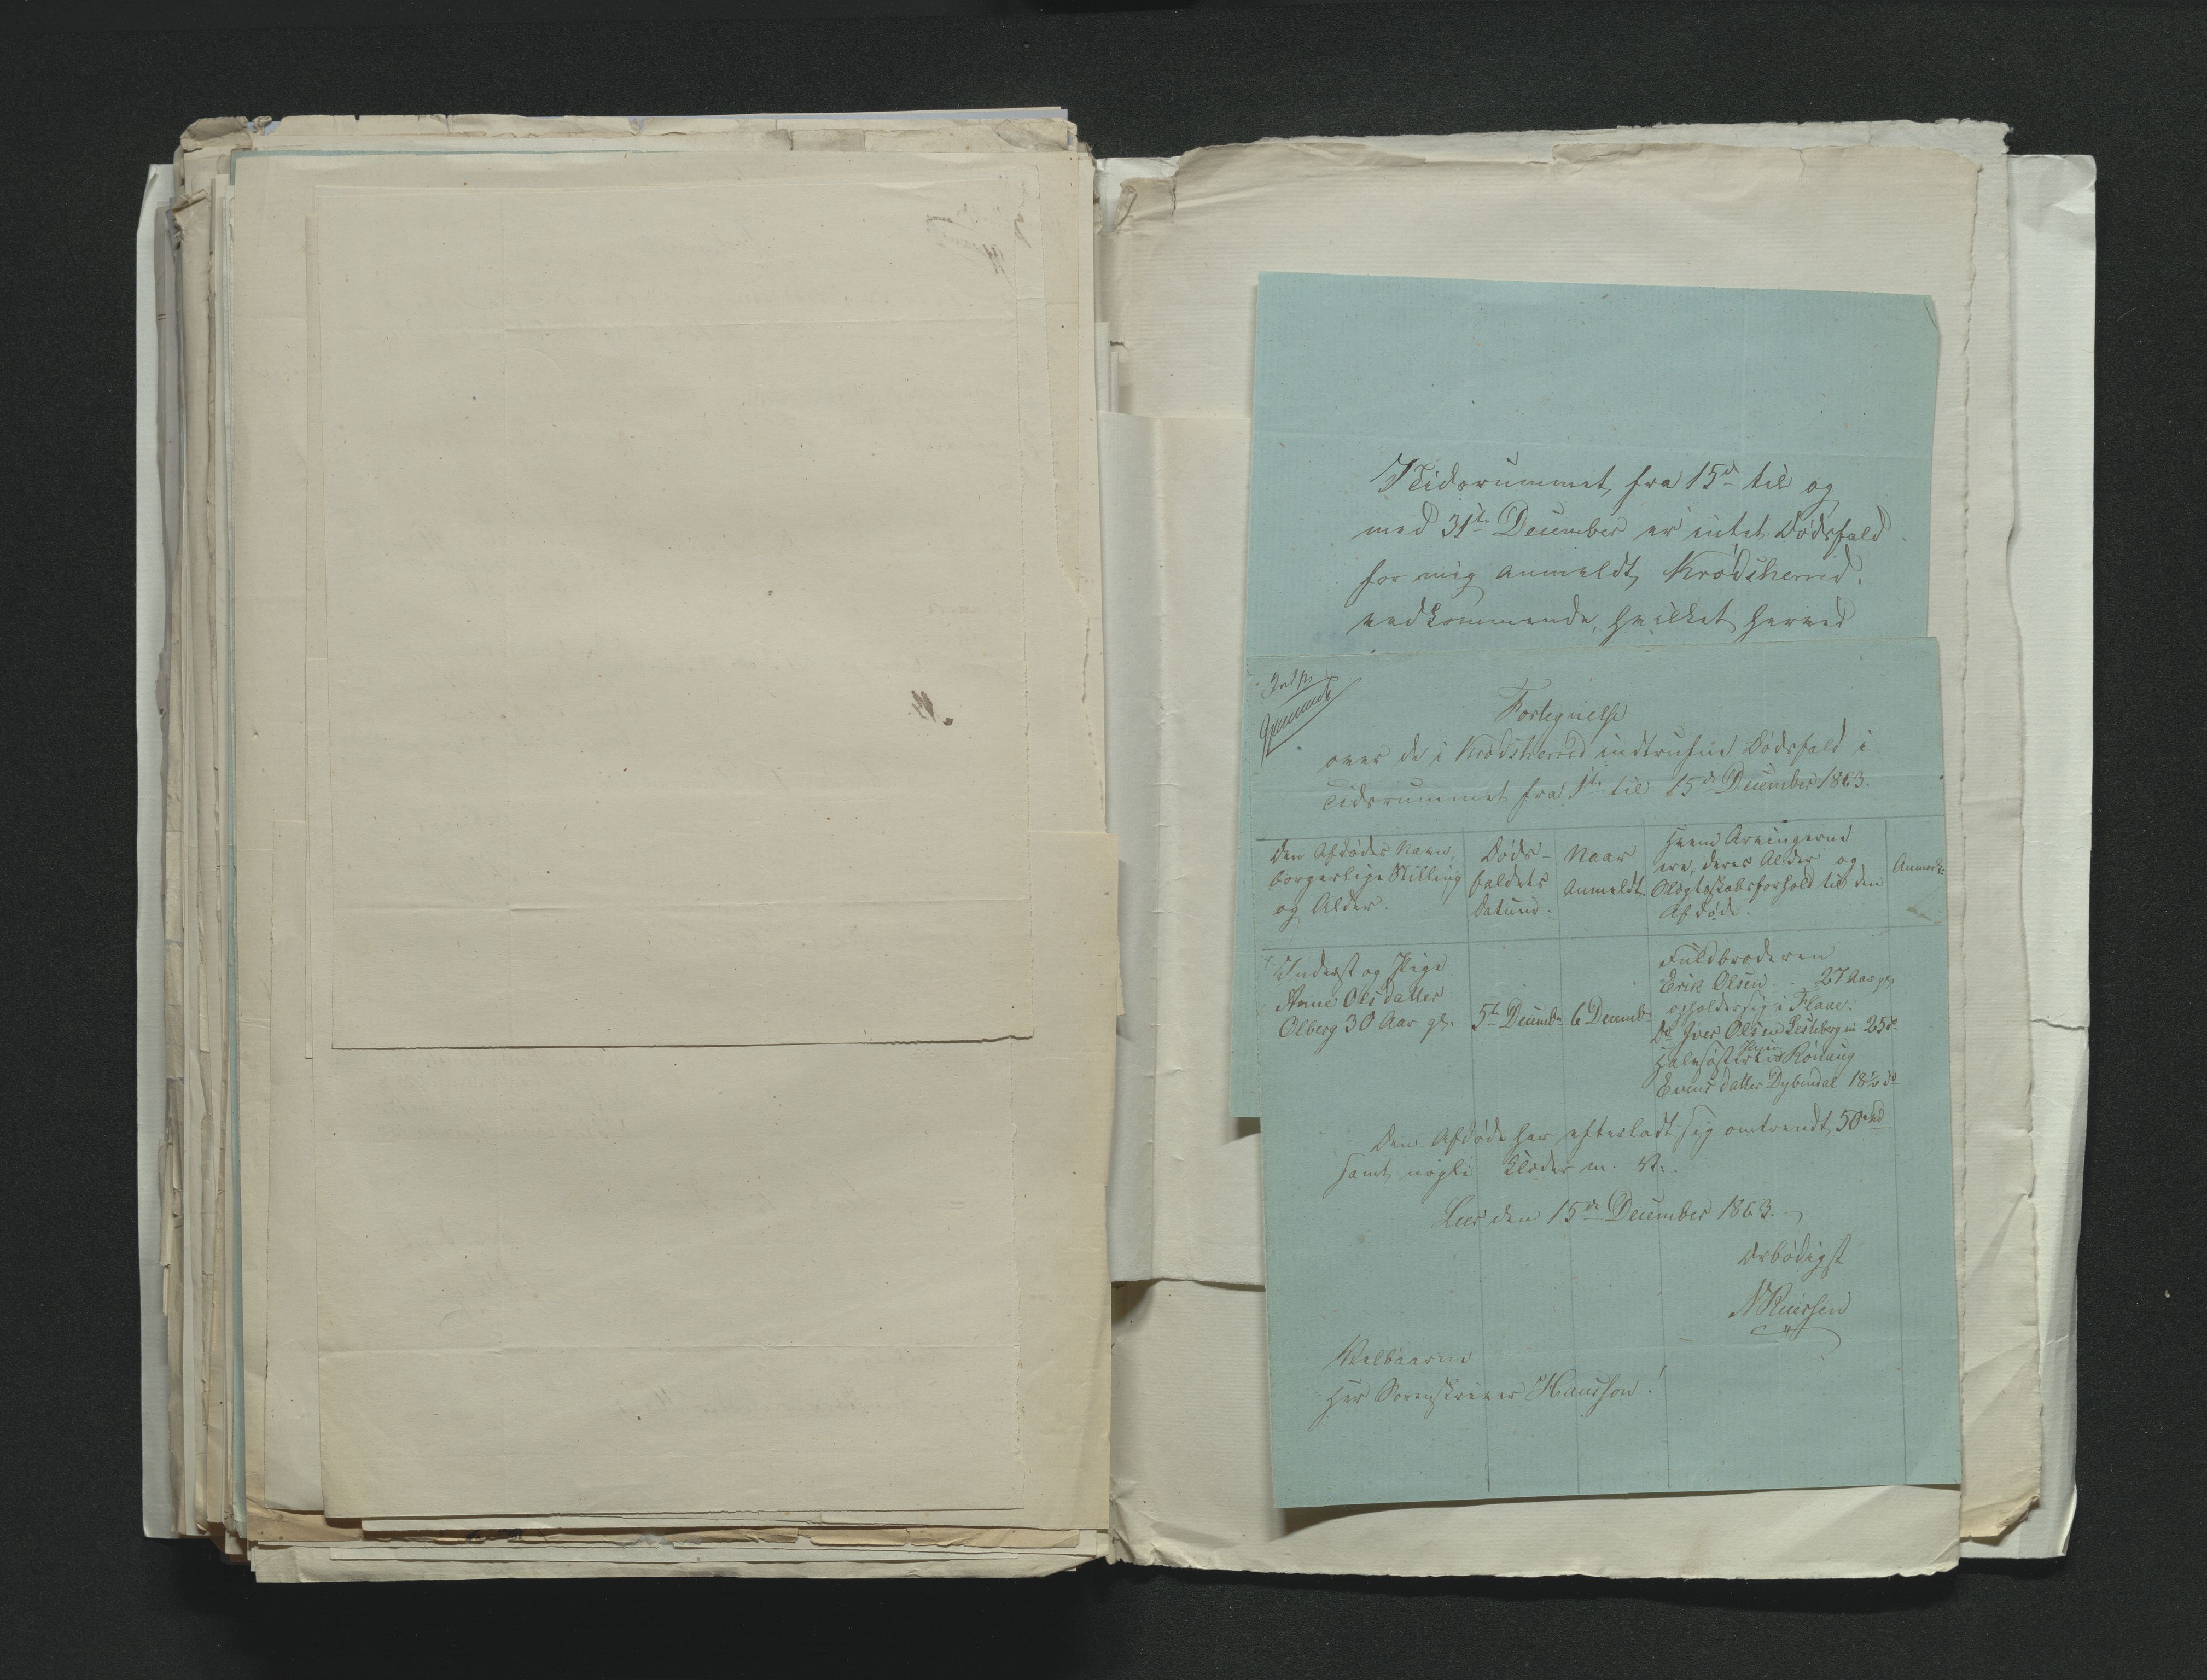 I Tidsrummet fra 15de til og
med 31te December er intet Dødsfald
for mig anmeldt, Krødsherred
vedkommende, hvilket herved
Fortegnelse
over de i Krødsherred indtrufne Dødsfald i
Tidsrummet fra 1te til 15de December 1863.
Den Afdødes Navn,
borgerlige Stilling
og Alder.
Døds-
faldets
Datum.
Naar
Anmeldt.
Hvem Arvingerne
ere, deres Alder og
Slægtskabsforhold til den
Afdøde.
Anmærk:
Inderst og Pige
Anne Olsdatter
Olberg 30 Aar gl.
5te Decembr
6 Decembr
Fuldbroderen
Erik Olsen 27 Aar gl.
opholder sig i Flaae.
Do Iver Olsen 25 do
Halvsøsteren Rønaug
Evensdatter Dybendal 18½ do
Den Afdøde har efterladt sig omtrendt 50
samt nogle Klæder m. V.
Leer den 15de December 1863.
Ærbødigst
Velbaarne
Herr Sorenskriver Hansson!